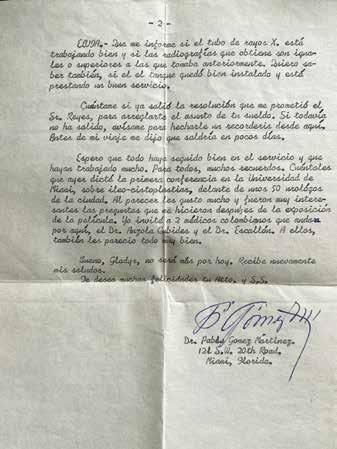 - 2 -
EDUSA.- Que me informe si el tubo de rayos X. está
trabajando bien y si las radiografías que obtiene son igua-
les o superiores a las que tomaba anteriormente. Quiero sa-
ber también, si el el tanque quedó bien instalado y está
prestando un buen servicio.
Cuéntame si ya salió la resolución que me prometió el
Sr. Reyes, para arreglarte el asunto de tu sueldo. Si todavía
no ha salido, avísame para hecharle un recorderis desde aquí.
Antes de mi viaje me dijo que saldría en pocos días.
Espero que todo haya seguido bien en el servicio y que
hayan trabajado mucho. Para todos, muchos recuerdos. Cuéntales
que ayer dicté la primera conferencia en la Universidad de
Miami, sobre íleo-cistoplastias, delante de unos 50 urólogos
de la ciudad. Al parecer les gustó mucho y fueron muy intere-
santes las preguntas que me hicieron después de la exposición
de la película. Yo invité a 2 médicos colombianos que andan
por aquí, el Dr. Anzola Cubides y el Dr. Escallón. A ellos,
también les pareció todo muy bien.
Bueno, Gladys, no será más por hoy. Recibe nuevamente
mis saludos.
Te desea muchas felicidades tu Atto. y S.S.
Dr. Pablo Gomez Martínez.
121 S.W. 20th Road.
Miami, Florida.